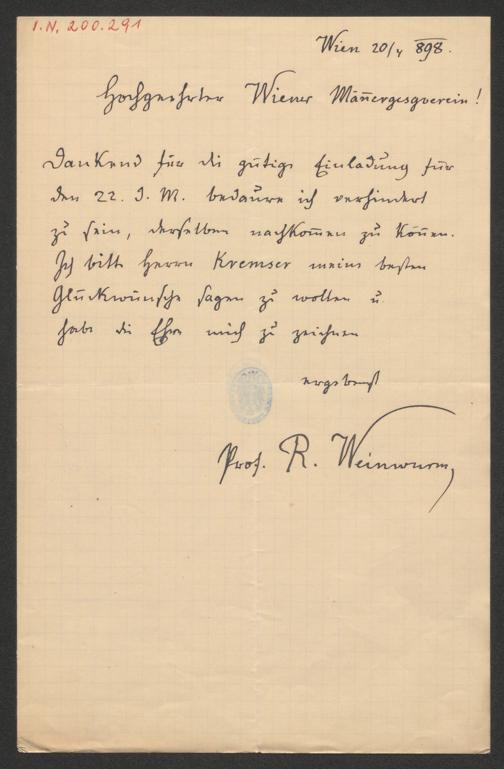 I.N. 200.291
Wien 20/4 898.
Hochgeehrter Wiener Mañergesgverein!
Dankend für die gütige Einladung für
den 22. d. M. bedaure ich verhindert
zu sein, derselben nachkom̄en zu kön̄en.
Ich bitte Herrn Kremser meine besten
Glückwünsche sagen zu wollen u.
habe die Ehre mich zu zeichnen
ergebenst
Prof. R. Weinwurm